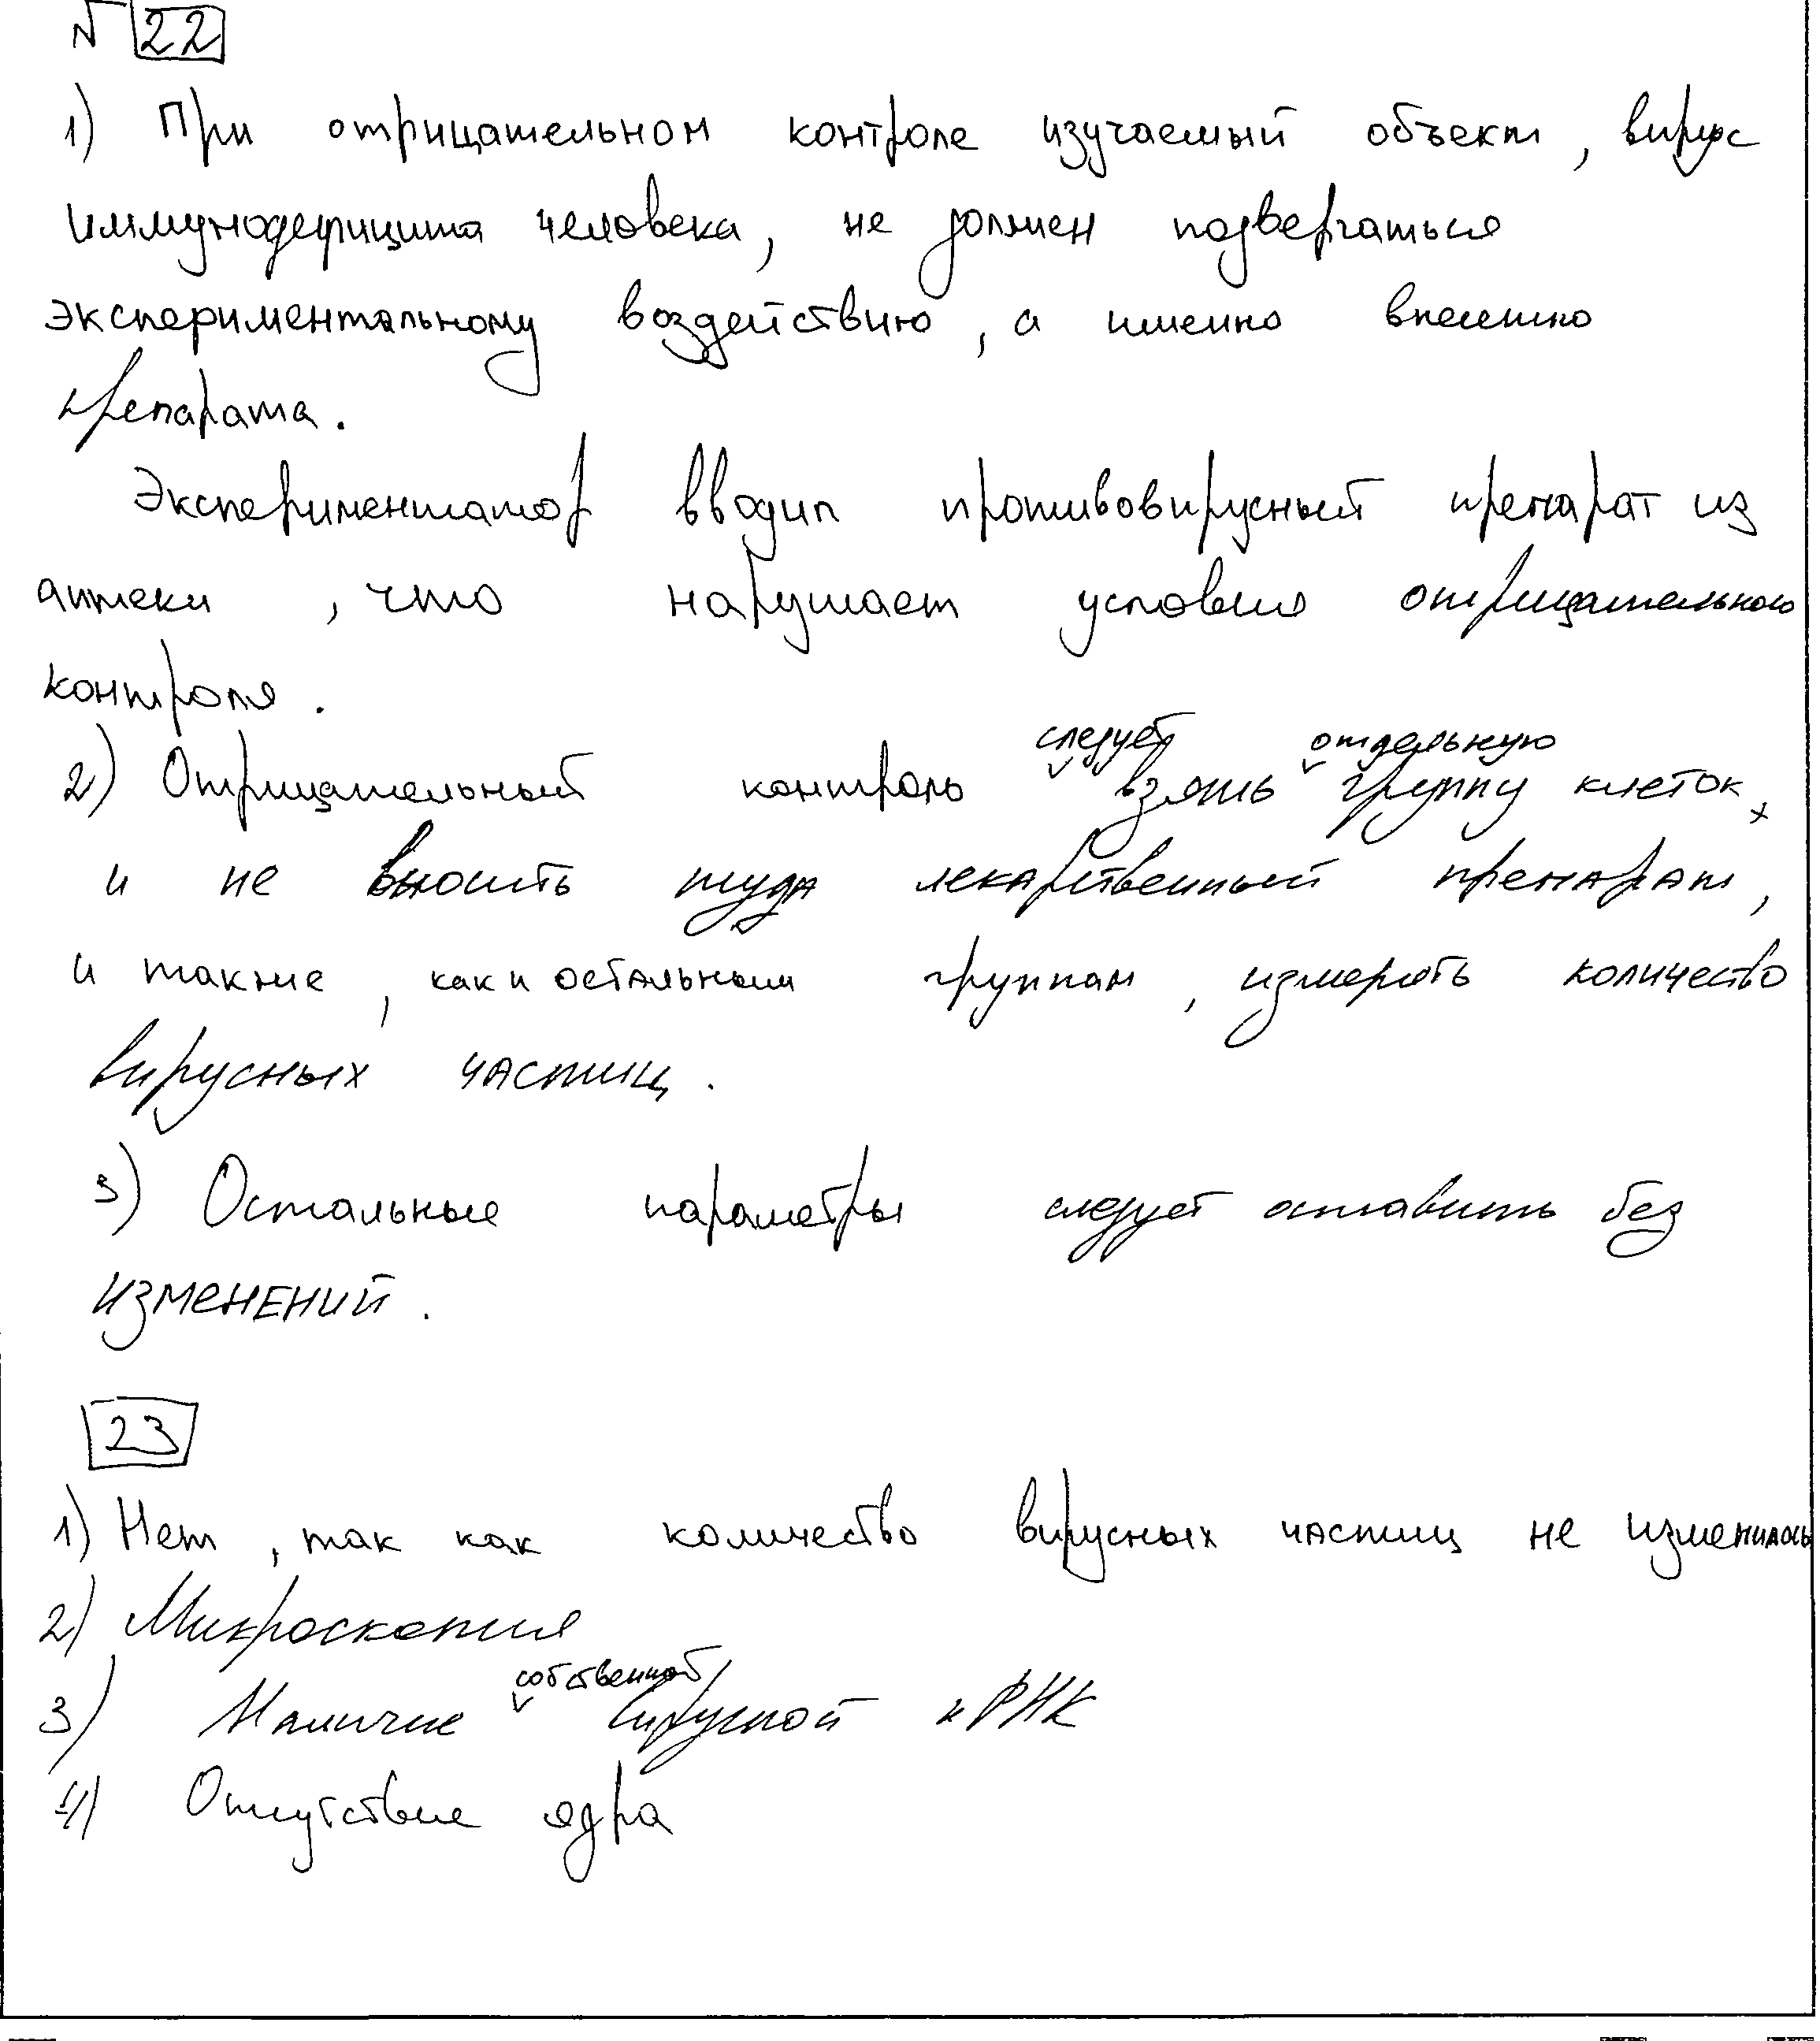 № 22
1) При отрицательном контроле изучаемый объект, вирус
иммунодефицита человека, не должен подвергаться
экспериментальному воздействию, а именно внесению
препарата.
Экспериментатор вводил противовирусный препарат из
аптеки, что нарушает условия отрицательного
контроля.
следует отдельную
2) Отрицательный контроль взять группу клеток
и не вносить туда лекарственный препарат,
и также, как и остальным группам, измерять количество
вирусных частиц.
3) Остальные параметры следует оставить без
изменений.
23
1) Нет, так как количество вирусных частиц не изменилось
2) Микроскопия
собственной
3) Наличие вирусной иРНК
4) Отсутствие ядра